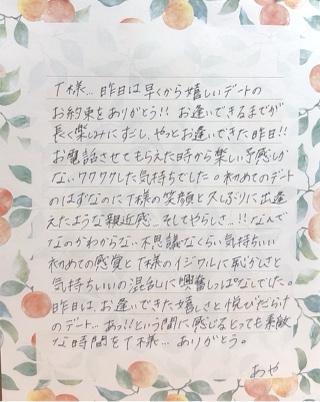 T様… 昨日は早くから嬉しいデートの
お約束をありがとう!! お逢いできるまでが
長く楽しみにすごし、やっとお逢いできた昨日!!
お電話させてもらえた時から楽しい予感しか
ない、ワクワクした気持ちでした。初めてのデート
のはずなのにT様の笑顔と久しぶりに出逢
えたような親近感… そしてやらしさ…!! なんで
なのかわからない不思議なくらい気持ちいい
初めての感覚とT様のイジワルに恥かしさと
気持ちいいの混乱に興奮しっぱなしでした。
昨日は、お逢いできた嬉しさと悦びだらけ
のデート… あっ!!という間に感じるとっても素敵
な時間をT様… ありがとう。
あや